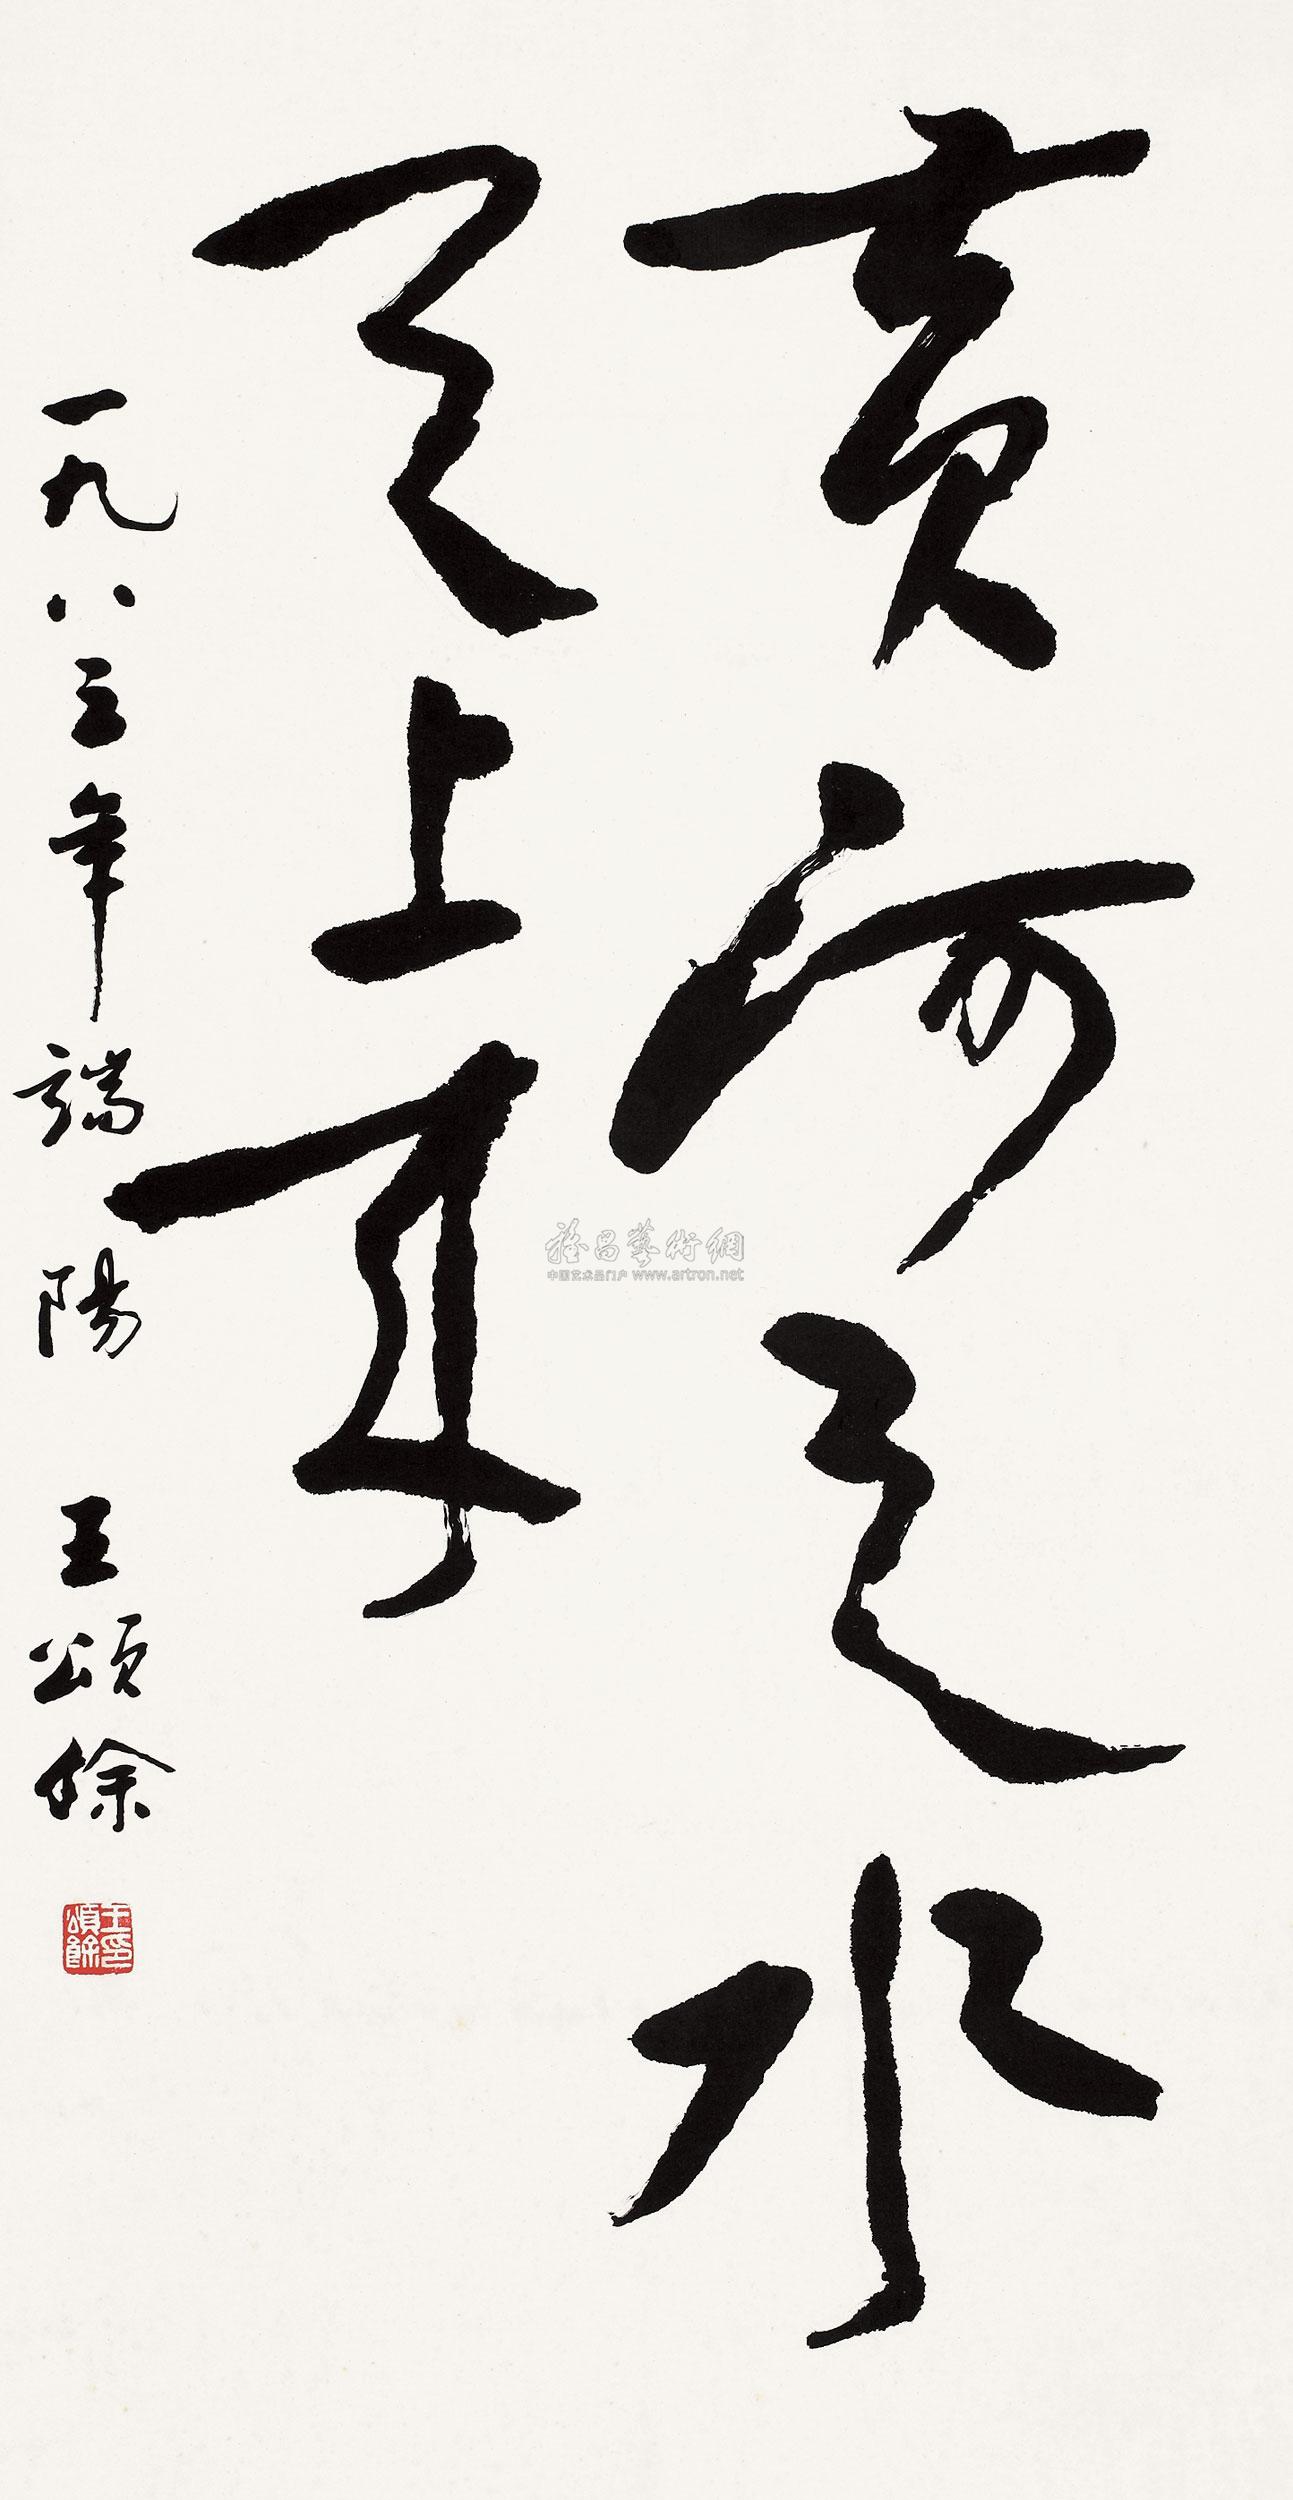 黄河之水
天上来
一九八三年端陽 王頌馀
王印
頌餘
雅昌藝術網
中国艺术品门户 www.artron.net